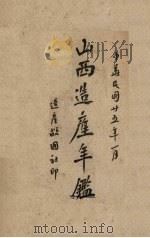 中華民國廿五年一月
山西造產年鑑
造產救國社印